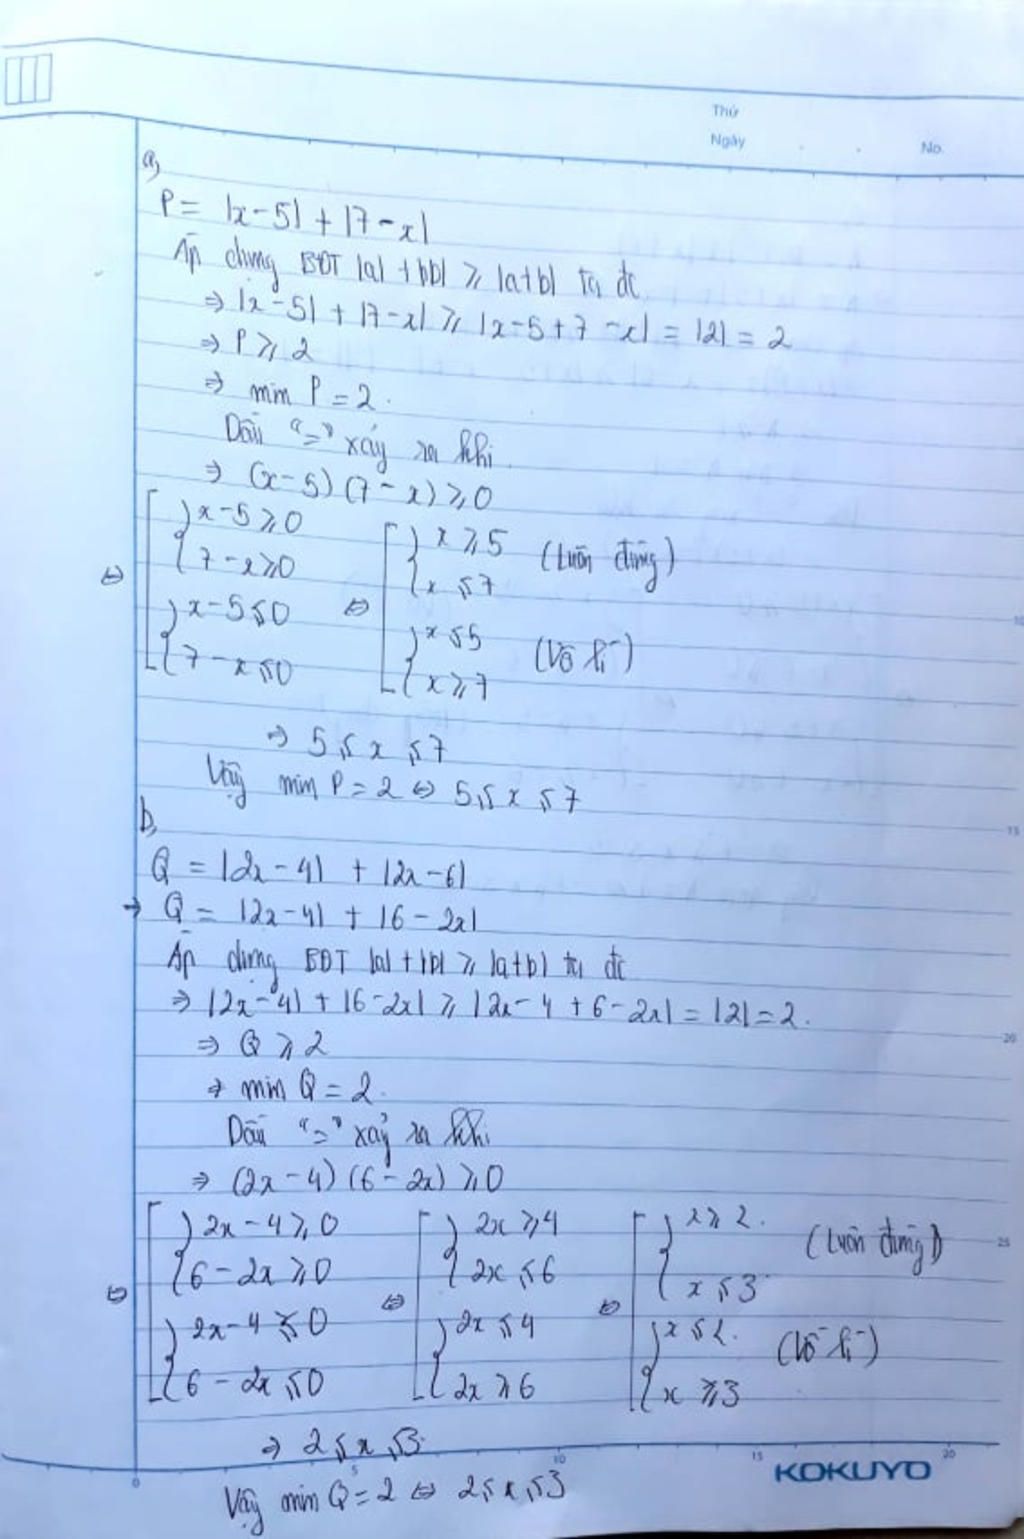 Thứ
Ngày
No.
a,
P = |x-5| + |7-x|
Áp dụng BĐT |a| + |b| ⩾ |a+b| ta đc
⇒ |x-5| + |7-x| ⩾ |x-5+7-x| = |2| = 2
⇒ P ⩾ 2
⇒ min P = 2.
Dấu "=" xảy ra khi
⇒ (x-5)(7-x) ⩾ 0
⇔ [ { x-5 ⩾ 0 ; 7-x ⩾ 0 ; { x-5 ⩽ 0 ; 7-x ⩽ 0 ⇔ [ { x ⩾ 5 ; x ⩽ 7 (Luôn đúng) ; { x ⩽ 5 ; x ⩾ 7 (Vô lí)
⇒ 5 ⩽ x ⩽ 7
Vậy min P = 2 ⇔ 5 ⩽ x ⩽ 7
b,
Q = |2x-4| + |2x-6|
→ Q = |2x-4| + |6-2x|
Áp dụng BĐT |a|+|b| ⩾ |a+b| ta đc
⇒ |2x-4| + |6-2x| ⩾ |2x-4+6-2x| = |2| = 2.
⇒ Q ⩾ 2
⇒ min Q = 2.
Dấu "=" xảy ra khi
⇒ (2x-4)(6-2x) ⩾ 0
⇔ [ { 2x-4 ⩾ 0 ; 6-2x ⩾ 0 ; { 2x-4 ⩽ 0 ; 6-2x ⩽ 0 ⇔ [ { 2x ⩾ 4 ; 2x ⩽ 6 ; { 2x ⩽ 4 ; 2x ⩾ 6 ⇔ [ { x ⩾ 2. ; x ⩽ 3 (Luôn đúng) ; { x ⩽ 2. ; x ⩾ 3 (Vô lí)
⇒ 2 ⩽ x ⩽ 3
5 10 15 20
KOKUYO
Vậy min Q = 2 ⇔ 2 ⩽ x ⩽ 3